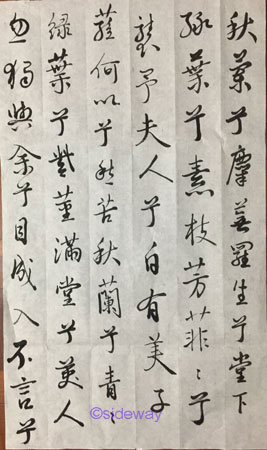 秋蘭兮蘼蕪羅生兮堂下
綠葉兮素枝芳菲々兮
襲予夫人兮自有美子
蓀何以兮愁苦秋蘭兮青々
綠葉兮紫莖滿堂兮美人
忽獨與余兮目成入不言兮
©sideway